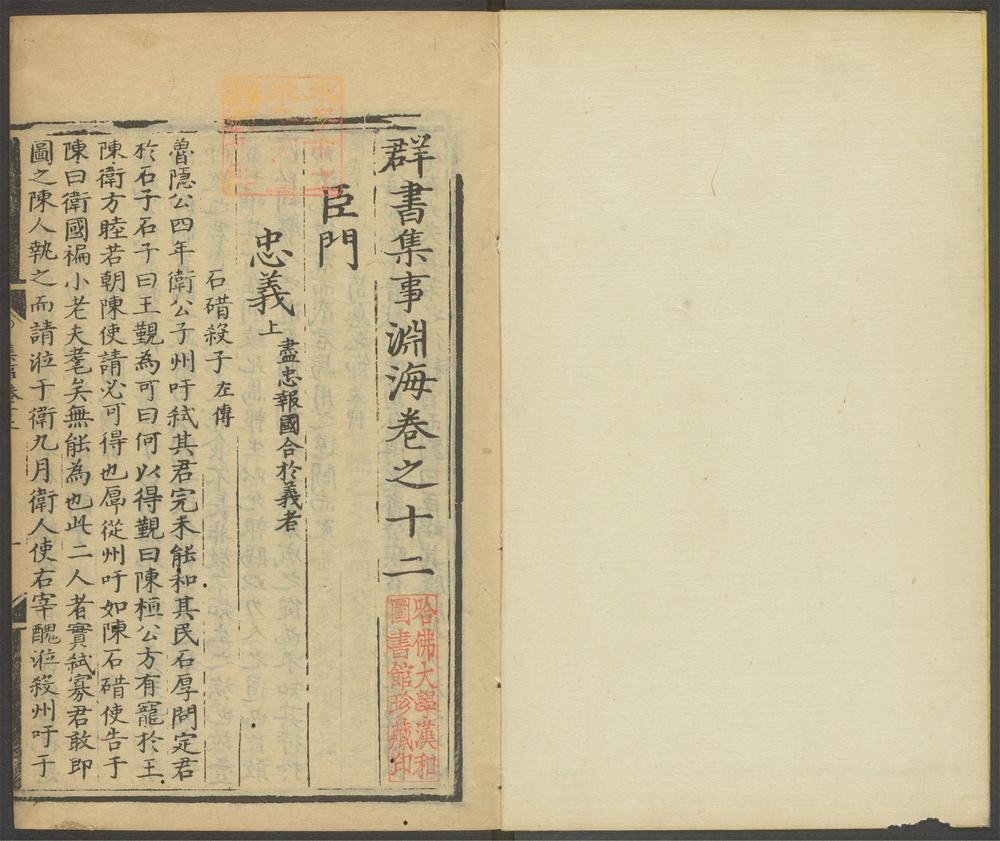 群書集事淵海卷之十二
哈佛大學漢和
圖書館珍藏印
臣門
忠義上 盡忠報國合於義者
石碏殺子 左傳
魯隱公四年衛公子州吁弑其君完未能和其民石厚問定君
於石子石子曰王覲為可曰何以得覲曰陳桓公方有寵於王
陳衛方睦若朝陳使請必可得也厚從州吁如陳石碏使告于
陳曰衛國褊小老夫耄矣無能為也此二人者實弑寡君敢即
圖之陳人執之而請涖于衛九月衛人使右宰醜涖殺州吁于